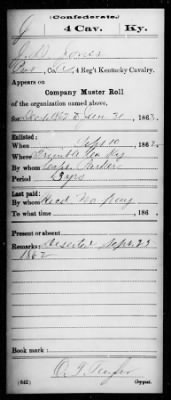 (Confederate.)
J 4 Cav. Ky.
Jones
Pvt Co. , 4 Reg't Kentucky Cavalry.
Appears on
Company Muster Roll
of the organization named above,
for Sept 10 1862 to Jan 31, 186
Enlisted:
When Sept 10, 1862
Where Ky
By whom Capt.
Period 3 yrs
Last paid:
By whom Recd No Pay
To what time , 186 .
Present or absent
Remarks: Deserted Sept. 23
1862
Book mark:
(642) Copyist.